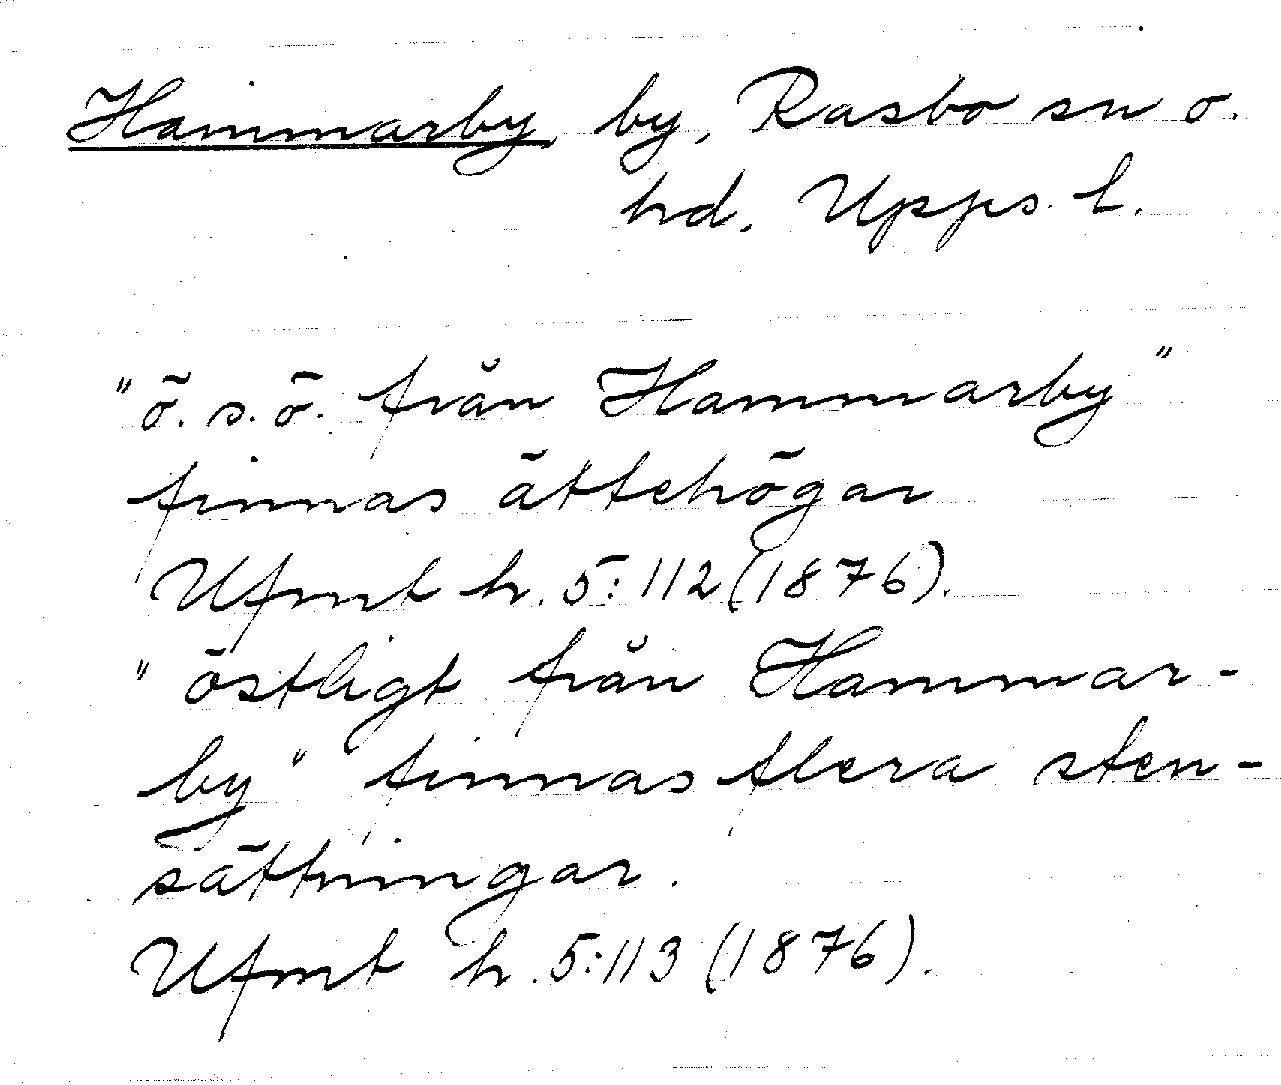 Hammarby by, Rasbo sn o.
hd, Upps. l.
"ö.s.ö. från Hammarby"
finnas ättehögar
Ufmt h. 5:112 (1876).
"östligt från Hammar-
by" finnas flera sten-
sättningar.
Ufmt h. 5:113 (1876).